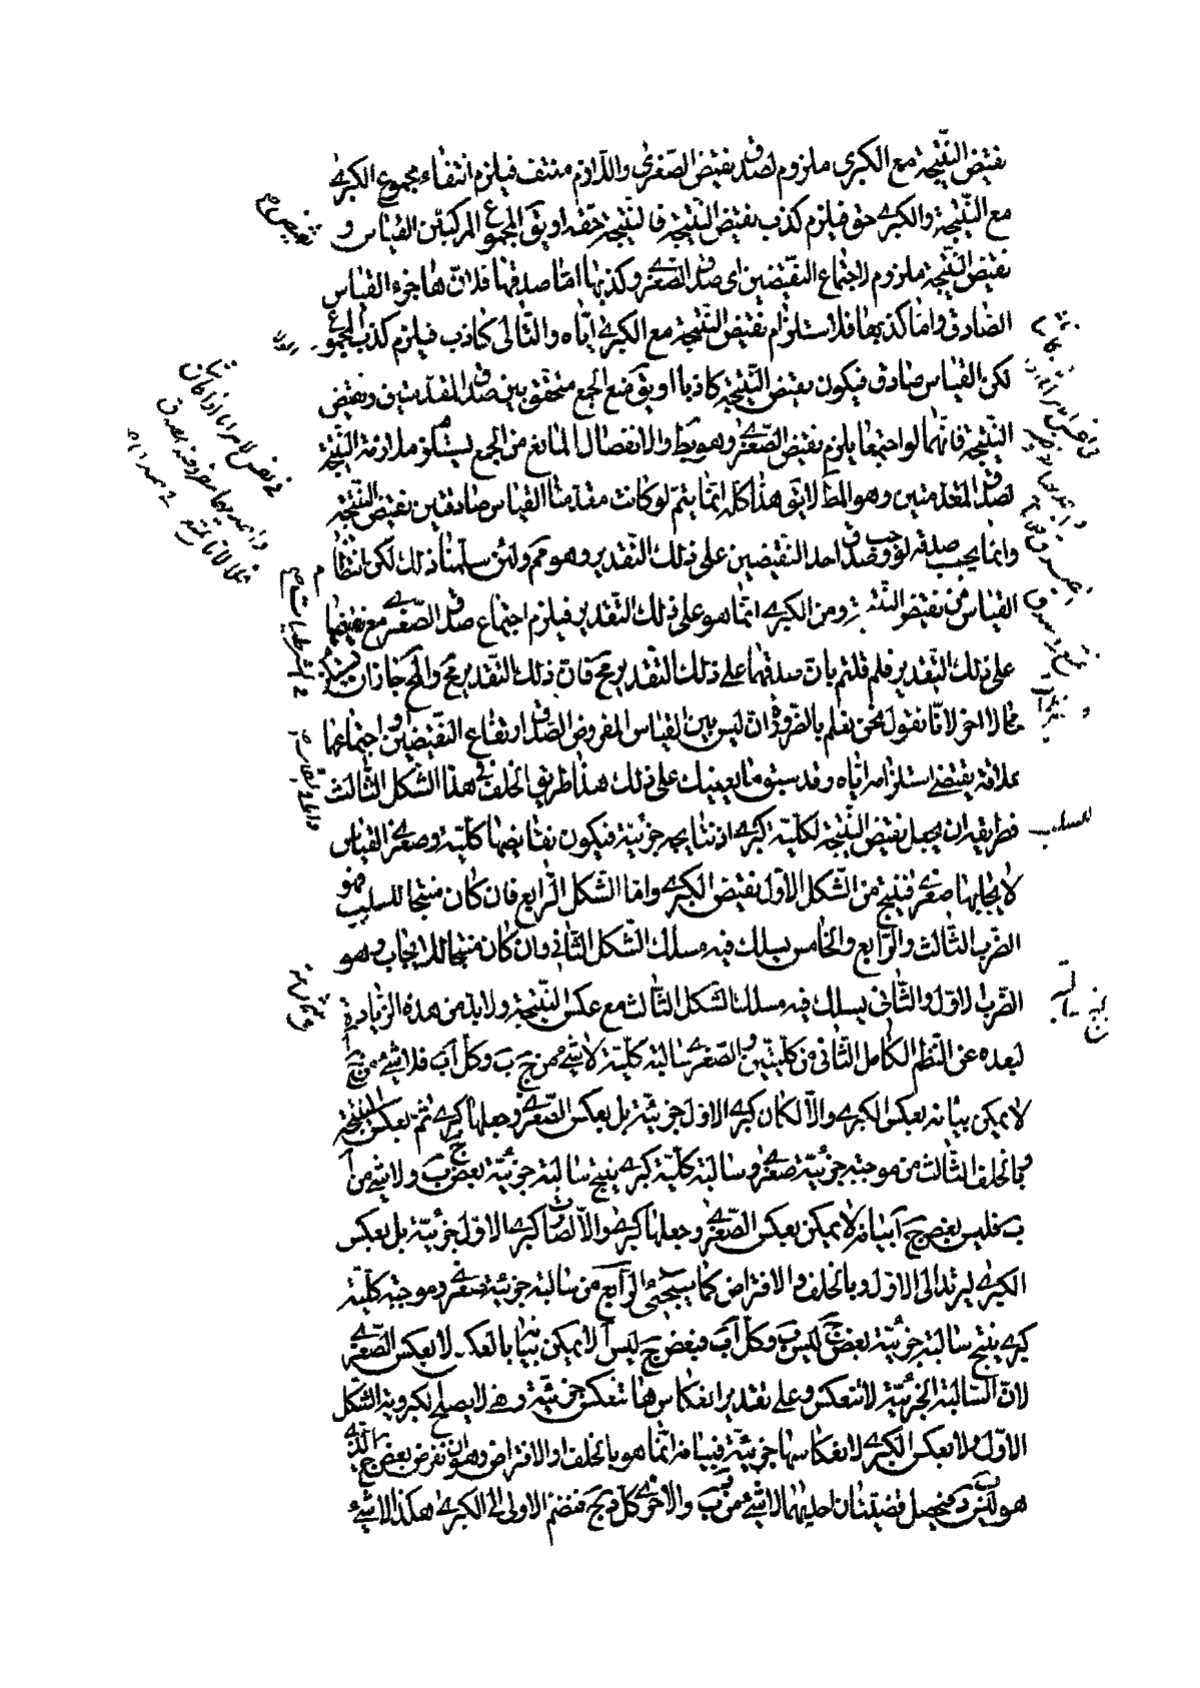 نقيض النتيجة مع الكبرى ملزوم لصدق نقيض الصغرى واللازم منتف فيلزم انتفاء مجموع الكبرى
مع النتيجة والكبرى حق فيلزم كذب نقيض النتيجة فالنتيجة حقة او يق المجموع المركب من القياس و
نقيض النتيجة ملزوم لاجتماع النقيضين اى صدق الصغرى وكذبها اما صدقها فلانها جزء القياس
الصادق واما كذبها فلاستلزام نقيض النتيجة مع الكبرى اياه والتالى كاذب فيلزم كذب المجموع
لكن القياس صادق فيكون نقيض النتيجة كاذبا او يق منع الجمع متحقق بين صدق المقدمتين ونقيض
النتيجة فانهما لو اجتمعا يلزم نقيض الصغرى وهو بط والانفصال المانع من الجمع يستلزم ملازمة النتيجة
لصدق المقدمتين وهو المط لا يق هذا كله انما يتم لو كانت مقدمتا القياس صادقتين نقيض النتيجة
وانما يجب صدقه لو وجب صدق احد النقيضين على ذلك التقدير وهو مم ولئن سلمنا ذلك لكن انتظام
القياس من نقيض ومن الكبرى انما هو على ذلك التقدير فيلزم اجتماع صدق الصغرى مع نقيضها
على ذلك التقدير فلم قلتم بان صدقهما على ذلك التقدير مح فان ذلك التقدير مح والمح جاز ان يستلزم
محالا اخر لانا نقول نحن نعلم بالضرورة ان ليس بين القياس المفروض الصدق وارتفاع النقيضين او اجتماعهما
علاقة يقتضى استلزامه اياه وقد سبق ما يعينك على ذلك هذا طريق الخلف فى هذا الشكل الثالث
فطريقه ان يجعل نقيض النتيجة لكليته كبرى اذ نتايجه جزئية فيكون نقايضها كلية وصغرى القياس
لايجابها صغرى فينتج من الشكل الاول نقيض الكبرى واما الشكل الرابع فان كان منتجا للسلب فهو
الضرب الثالث والرابع والخامس يسلك فيه مسلك الشكل الثانى وان كان منتجا للايجاب وهو
الضرب الاول والثانى يسلك فيه مسلك الشكل الثالث مع عكس النتيجة ولابد من هذه الزيادة
لبعده عن النظم الكامل الثانى من كليتين والصغرى سالبة كلية لا شئ من ج ب وكل آ ب فلا شئ من ج آ
لا يمكن بيانه بعكس الكبرى والا لكان كبرى الاول جزئية بل بعكس الصغرى وجعلها كبرى ثم بعكس النتيجة
وبالخلف الثالث من موجبة جزئية صغرى وسالبة كلية كبرى ينتج سالبة جزئية بعض ج ب ولا شئ من آ
ب فليس بعض ج آ بيانه لا يمكن بعكس الصغرى وجعلها كبرى والا لصارت كبرى الاول جزئية بل بعكس
الكبرى ليرتد الى الاول وبالخلف والافتراض كما سيجئ الرابع من سالبة جزئية صغرى وموجبة كلية
كبرى ينتج سالبة جزئية بعض ج ليس ب وكل آ ب فبعض ج ليس آ لا يمكن بيانها بالعكس لا بعكس الصغرى
لان السالبة الجزئية لا تنعكس وعلى تقدير انعكاسها تنعكس جزئية وهى لا يصلح لكبروية الشكل
الاول ولا بعكس الكبرى لانعكاسها جزئية فبيانه انما هو بالخلف او الافتراض وهو ان نفرض بعض ج الذى
هو ليس ب د فيحصل قضيتان احديهما لا شئ من د ب والاخرى كل د ج فنضم الاولى الى الكبرى هكذا لا شئ
للسلب